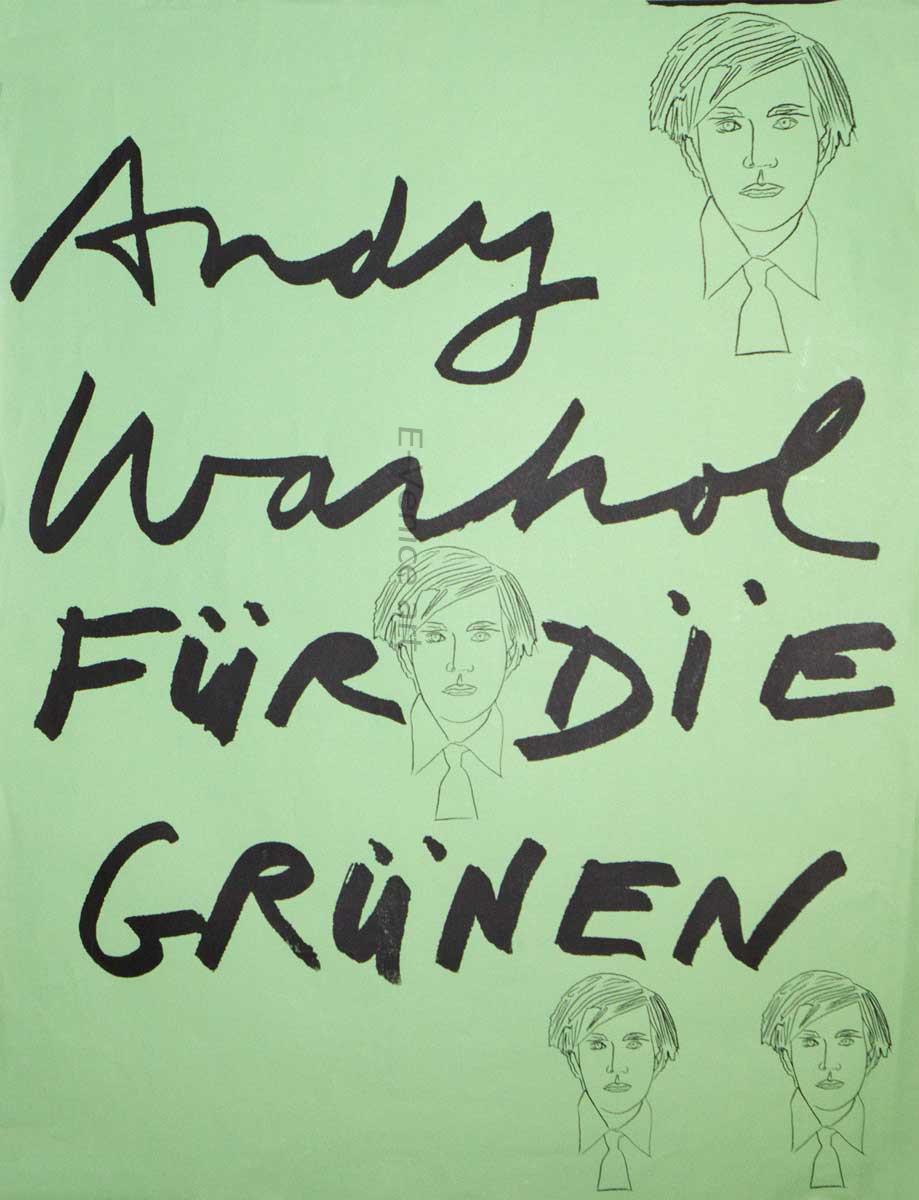 Andy
Warhol
FÜR DIE
GRÜNEN
E-Venice art